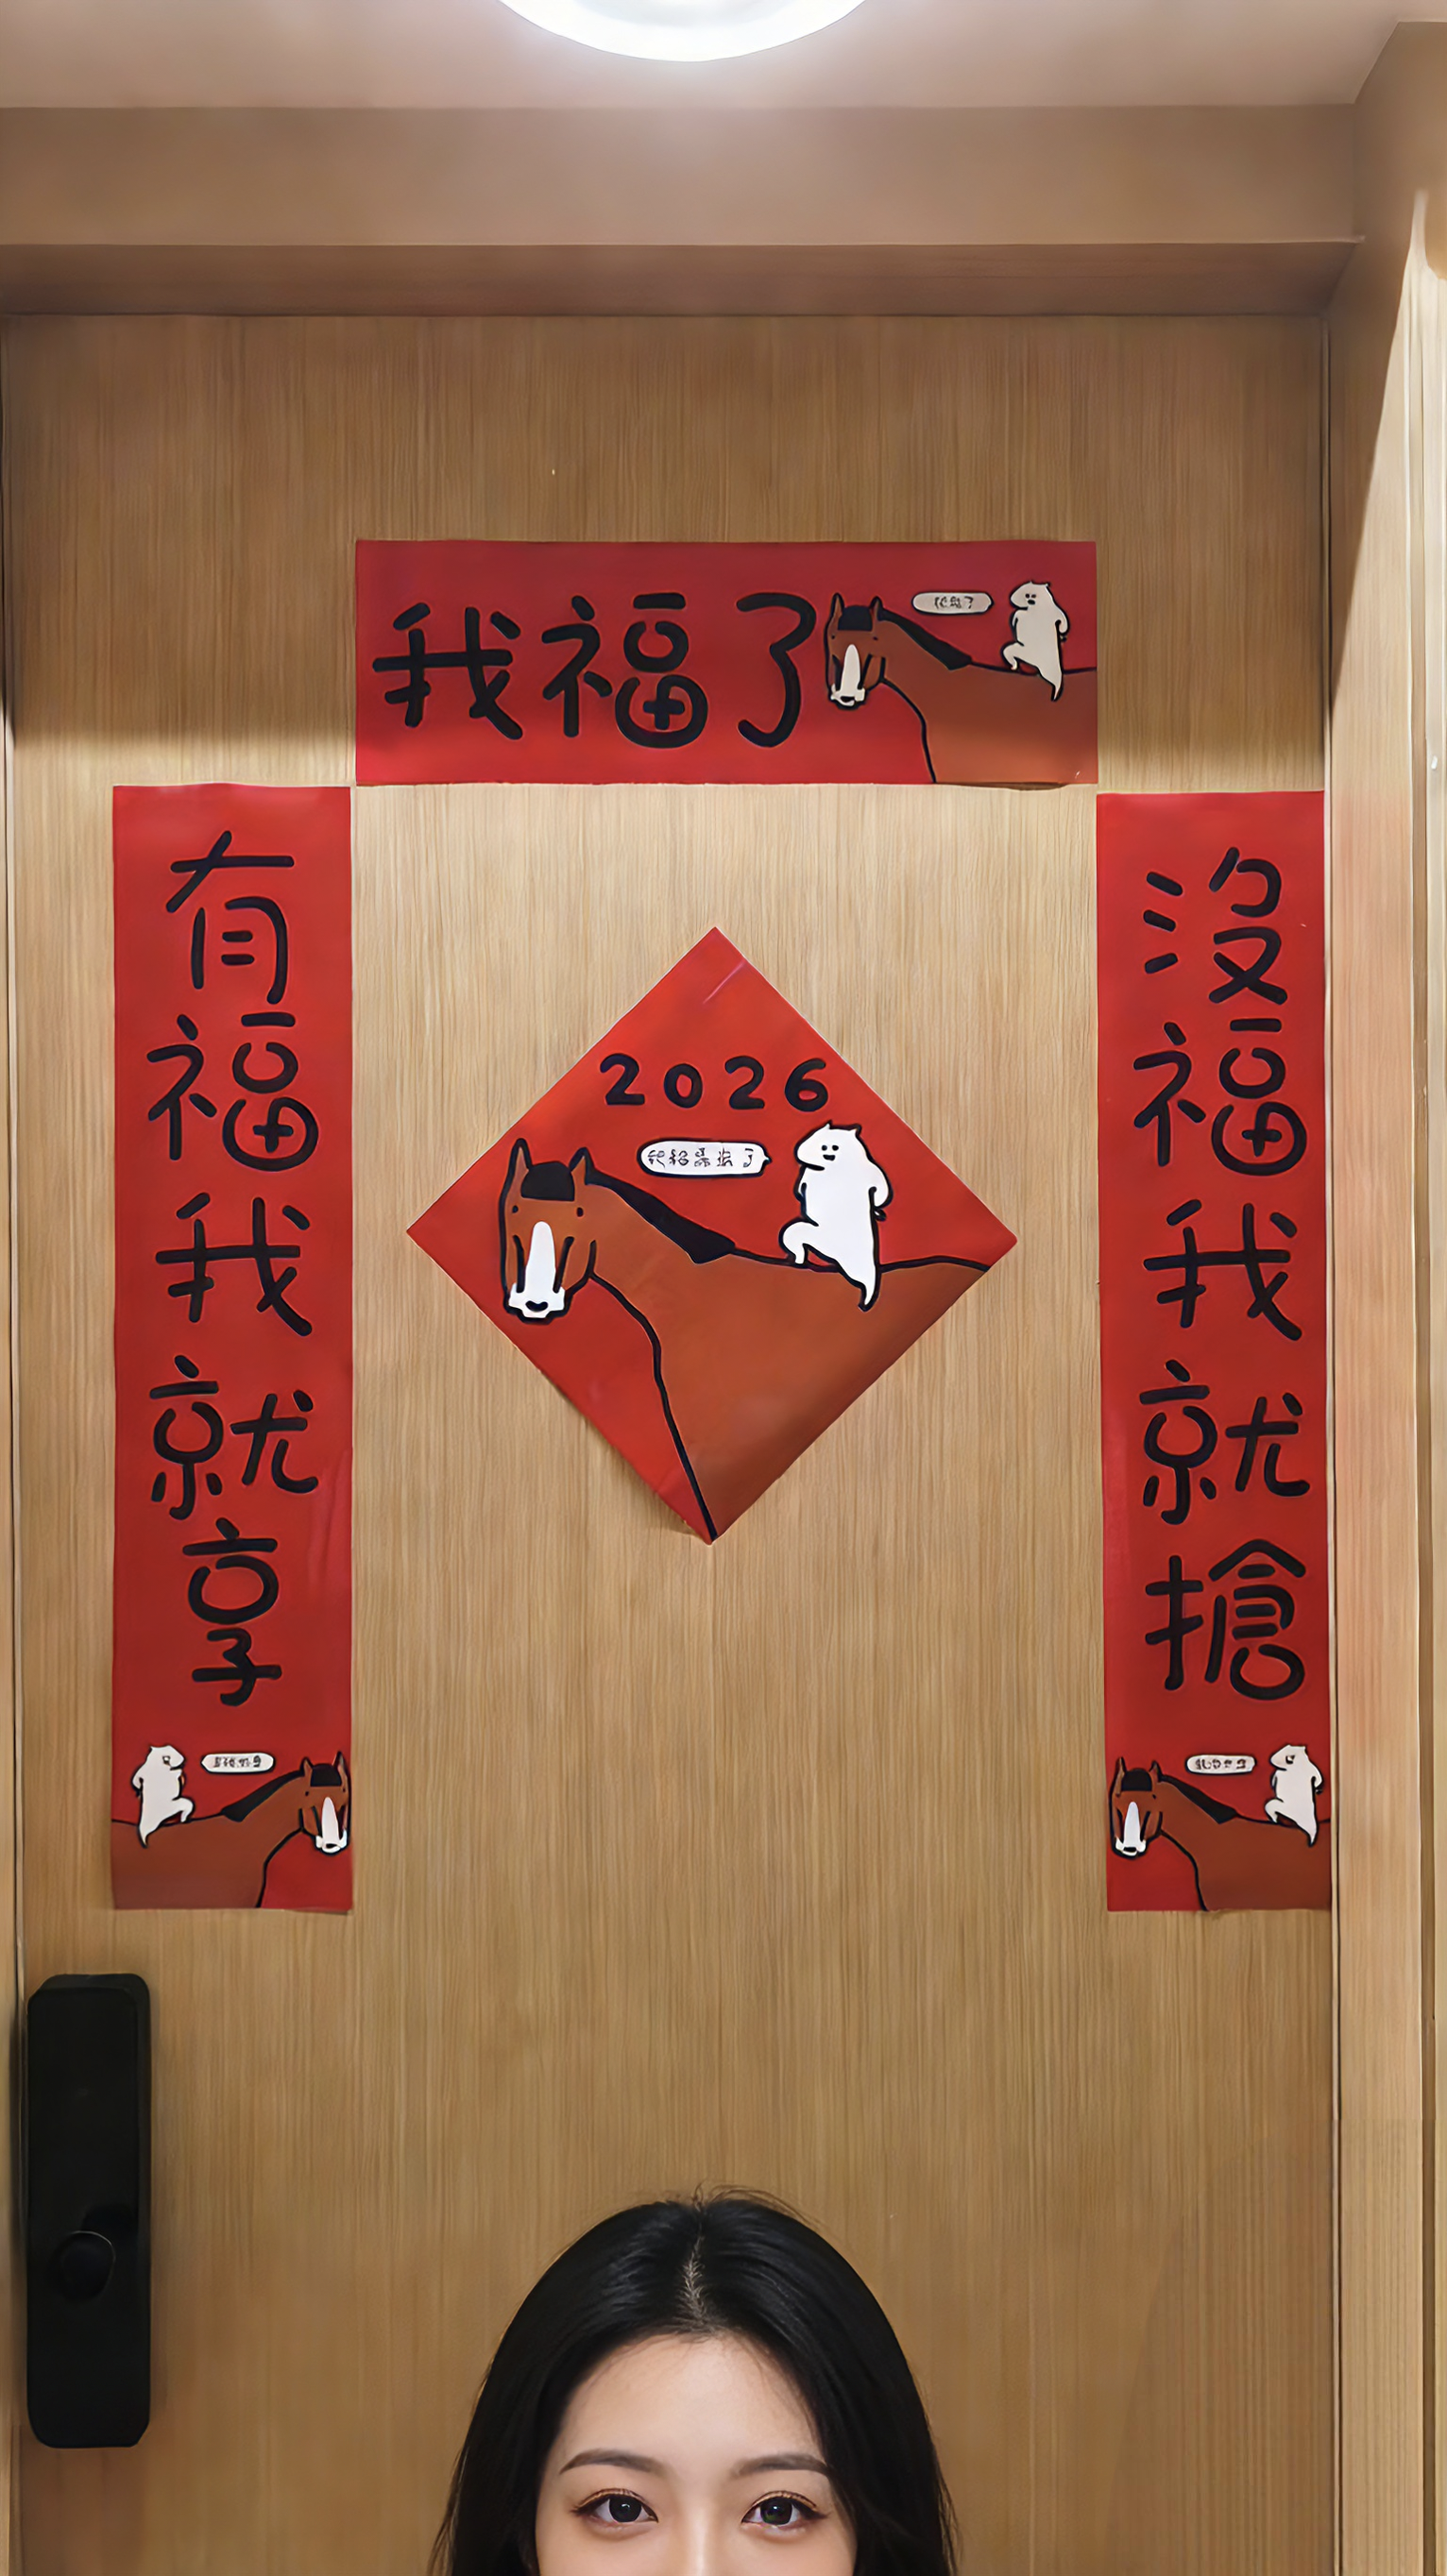 我福了
有福我就享
沒福我就搶
2026